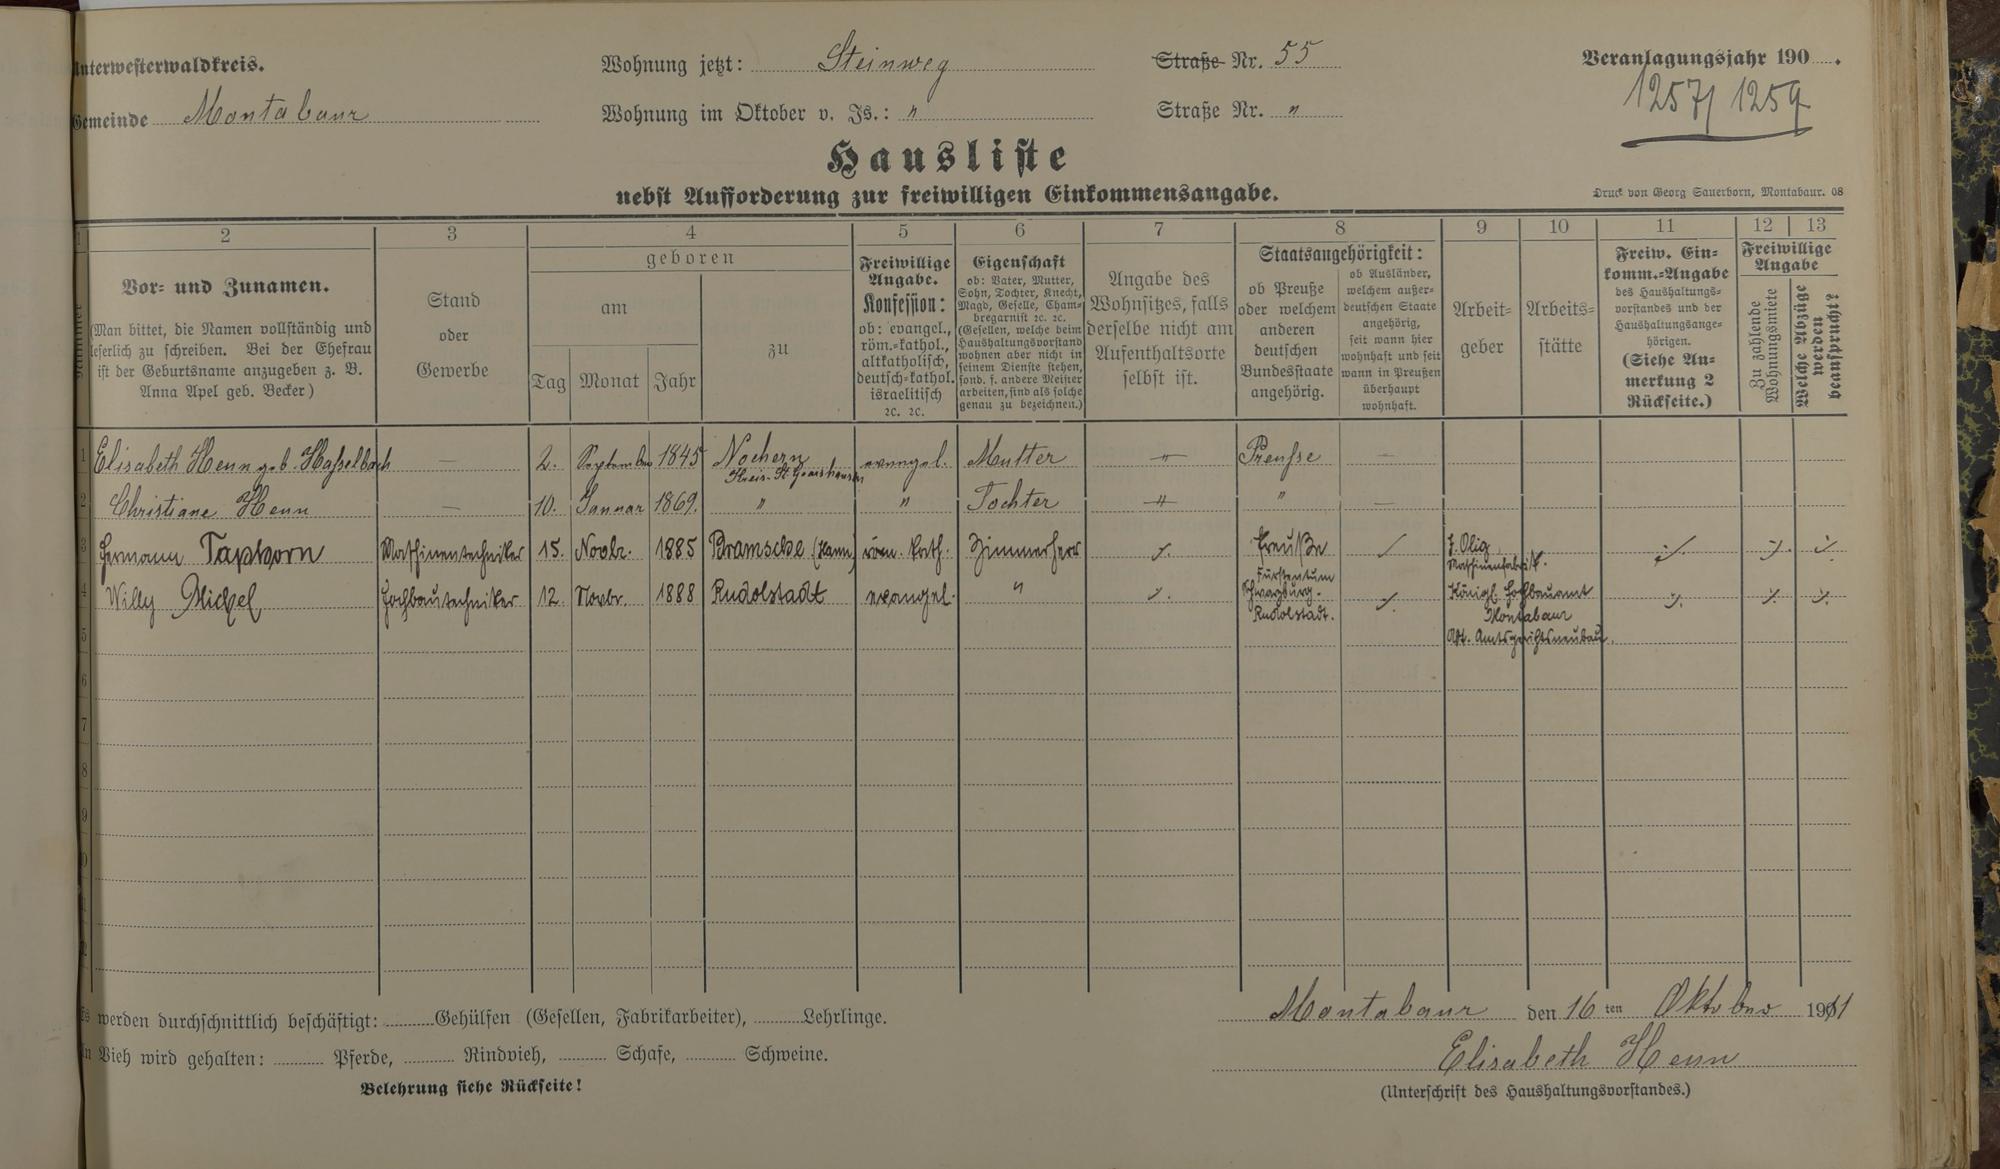 Unterwesterwaldkreis.
Gemeinde Montabaur
Wohnung jetzt: Steinweg Straße Nr. 55
Wohnung im Oktober v. Js.: " Straße Nr. "
Veranlagungsjahr 190 .
1257/1259
Hausliste
nebst Aufforderung zur freiwilligen Einkommensangabe.
Druck von Georg Sauerborn, Montabaur. 08
1 2 3 4 5 6 7 8 9 10 11 12 13
Nummer
Vor- und Zunamen.
(Man bittet, die Namen vollständig und
leserlich zu schreiben. Bei der Ehefrau
ist der Geburtsname anzugeben z. B.
Anna Apel geb. Becker)
Stand
oder
Gewerbe
geboren
am
Tag Monat Jahr
zu
Freiwillige
Angabe.
Konfession:
ob: evangel.,
röm.-kathol.,
altkatholisch,
deutsch-kathol.
israelitisch
2c. 2c.
Eigenschaft
ob: Vater, Mutter,
Sohn, Tochter, Knecht,
Magd, Geselle, Cham-
bregarnist 2c. 2c.
(Gesellen, welche beim
Haushaltungsvorstand
wohnen aber nicht in
seinem Dienste stehen,
sond. f. andere Meister
arbeiten, sind als solche
genau zu bezeichnen.)
Angabe des
Wohnsitzes, falls
derselbe nicht am
Aufenthaltsorte
selbst ist.
Staatsangehörigkeit:
ob Preuße
oder welchem
anderen
deutschen
Bundesstaate
angehörig.
ob Ausländer,
welchem außer-
deutschen Staate
angehörig,
seit wann hier
wohnhaft und seit
wann in Preußen
überhaupt
wohnhaft.
Arbeit-
geber
Arbeits-
stätte
Freiw. Ein-
komm.-Angabe
des Haushaltungs-
vorstandes und der
Haushaltungsange-
hörigen.
(Siehe An-
merkung 2
Rückseite.)
Freiwillige
Angabe
Zu zahlende
Wohnungsmiete
Welche Abzüge
werden
beansprucht?
1 Elisabeth Henn geb. Haßelbach — 2. September 1845 Nochern Kreis St. Goarshausen evangel. Mutter " Preuße —
2 Christiane Henn — 10. Januar 1869. " " Tochter " " —
3 Hermann Taphorn Maschinentechniker 15. Novbr. 1885 Bramsche (Hann) röm. kath. Zimmerherr ./. Preuße / J. Olig Maschinenfabrik. ./. ./. ./.
4 Willy Michel Hochbautechniker 12. Novbr. 1888 Rudolstadt evangel. " ./. Fürstentum Schwarzburg-Rudolstadt. ./. Königl. Hochbauamt Montabaur Abt. Amtsgerichtsneubau. ./. ./. ./.
5
6
7
8
9
0
1
2
Es werden durchschnittlich beschäftigt: Gehülfen (Gesellen, Fabrikarbeiter), Lehrlinge.
An Vieh wird gehalten: Pferde, Rindvieh, Schafe, Schweine.
Belehrung siehe Rückseite!
Montabaur den 16 ten Oktober 1911
Elisabeth Henn
(Unterschrift des Haushaltungsvorstandes.)